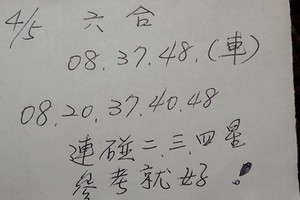 4/5 六合
08.37.48.(車)
08.20.37.40.48
連碰二.三.四星
參考就好!